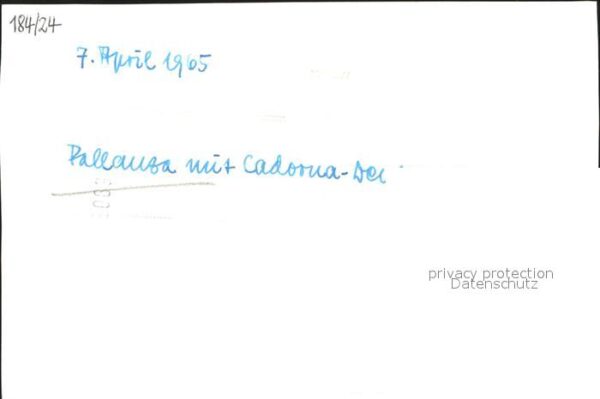 184/24
7. April 1965
Pallanza mit Cadorna-
privacy protection
Datenschutz